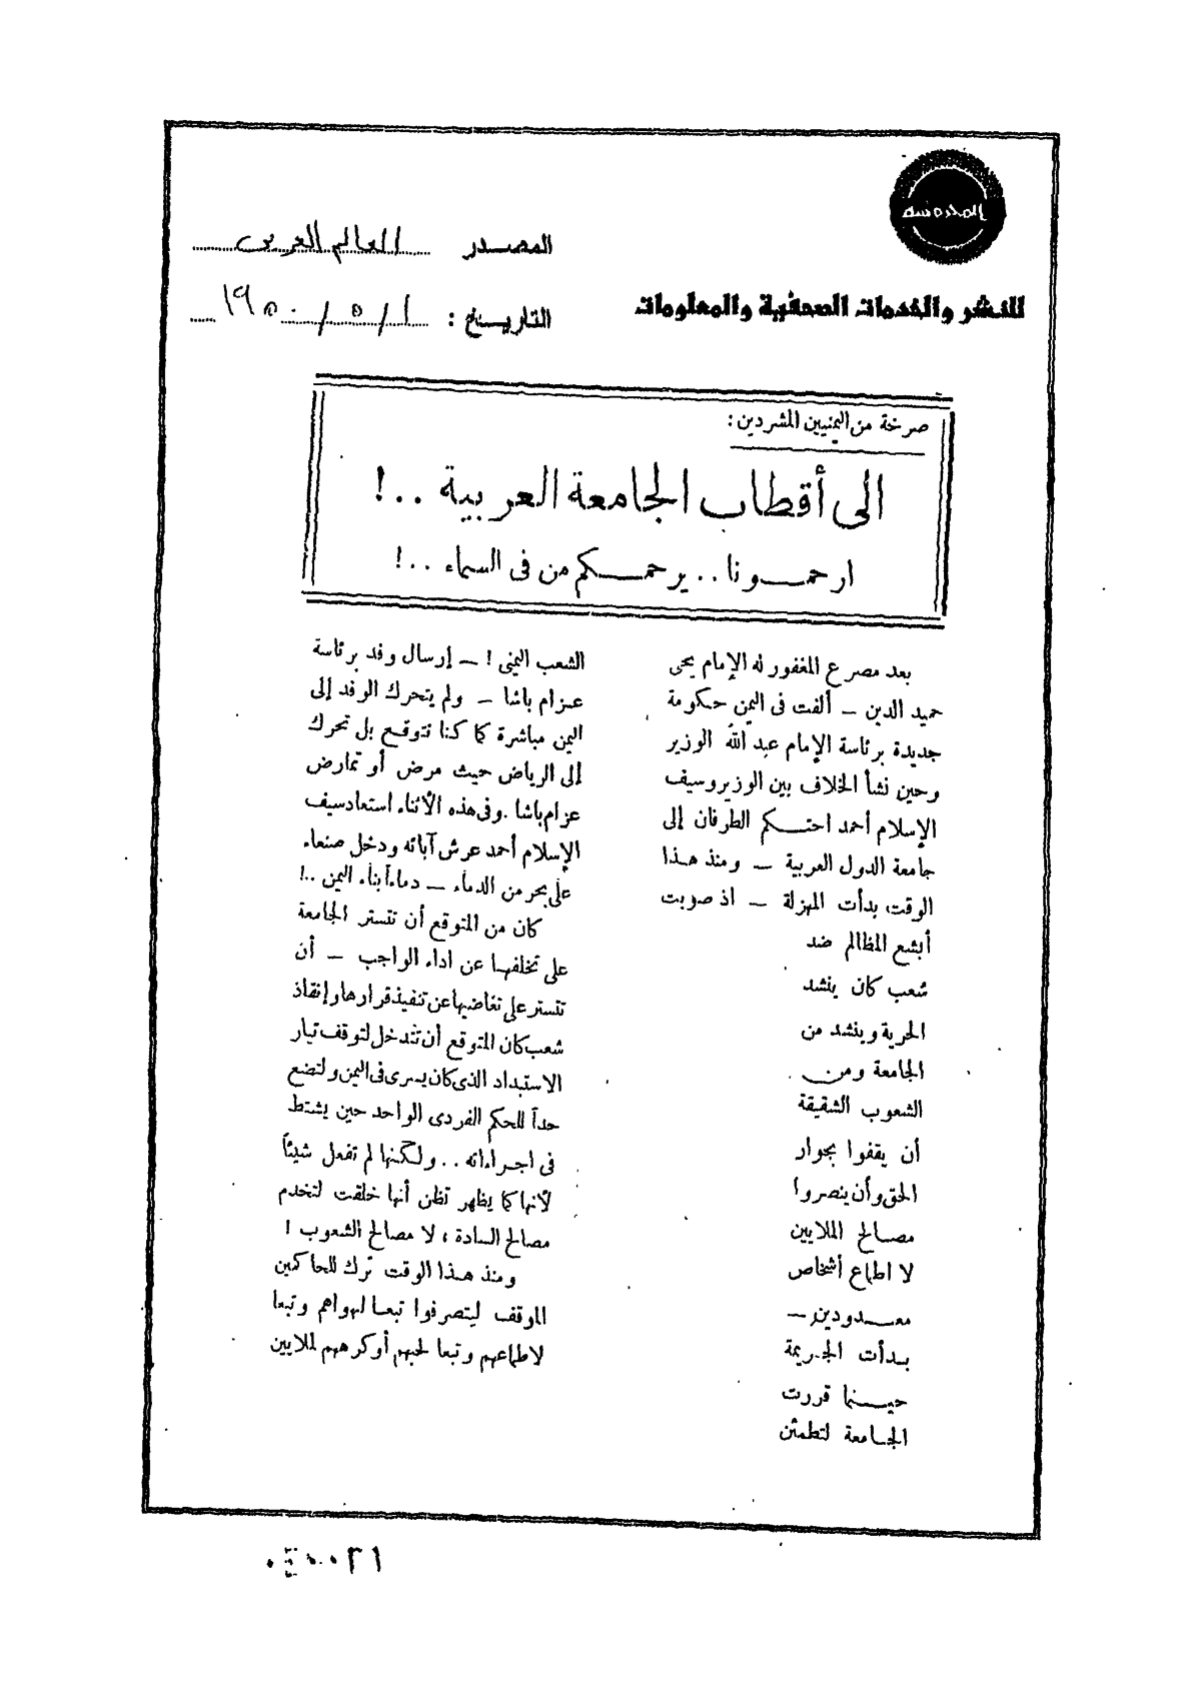 المحروسة
للنشر والخدمات الصحفية والمعلومات
المصدر العالم العربى
التاريخ : ١ / ٥ / ١٩٥٠
صرخة من اليمنيين المشردين :
الى أقطاب الجامعة العربية . . !
ارحمونا . . يرحمكم من فى السماء . . !
بعد مصرع المغفور له الإمام يحى
حميد الدين — ألفت فى اليمن حكومة
جديدة برئاسة الإمام عبد الله الوزير
وحين نشأ الخلاف بين الوزير وسيف
الإسلام أحمد احتكم الطرفان إلى
جامعة الدول العربية — ومنذ هذا
الوقت بدأت المهزلة — اذ صوبت
أبشع المظالم ضد
شعب كان ينشد
الحرية وينشد من
الجامعة ومن
الشعوب الشقيقة
أن يقفوا بجوار
الحق وأن ينصروا
مصالح الملايين
لا اطماع أشخاص
معدودين —
بدأت الجريمة
حينما قررت
الجامعة لتطمئن
الشعب اليمنى ! — إرسال وفد برئاسة
عزام باشا — ولم يتحرك الوفد إلى
اليمن مباشرة كما كنا نتوقع بل تحرك
إلى الرياض حيث مرض أو تمارض
عزام باشا . وفى هذه الأثناء استعاد سيف
الإسلام أحمد عرش آبائه ودخل صنعاء
على بحر من الدماء — دماء أبناء اليمن . . !
كان من المتوقع أن تتستر الجامعة
على تخلفها عن اداء الواجب — أن
تتستر على تغاضيها عن تنفيذ قرارها وإنقاذ
شعب كان المتوقع أن تتدخل لتوقف تيار
الاستبداد الذى كان يسرى فى اليمن ولتضع
حداً للحكم الفردى الواحد حين يشتط
فى اجراءاته . . ولكنها لم تفعل شيئاً
لأنها كما يظهر تظن أنها خلقت لتخدم
مصالح السادة ، لا مصالح الشعوب !
ومنذ هذا الوقت ترك للحاكمين
الموقف ليتصرفوا تبعا لهواهم وتبعا
لاطماعهم وتبعا لحبهم أو كرههم لملايين